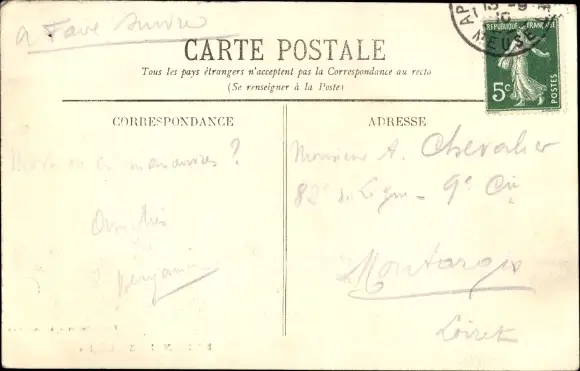 A Faire Suivre
CARTE POSTALE
Tous les pays étrangers n'acceptent pas la Correspondance au recto
(Se renseigner à la Poste)
REPUBLIQUE FRANÇAISE
5c
POSTES
MEUSE
CORRESPONDANCE
en manœuvres ?
Amitiés
Benjamin
ADRESSE
Monsieur A. Chevalier
82e de Ligne - 9e Cie
Montargis
Loiret